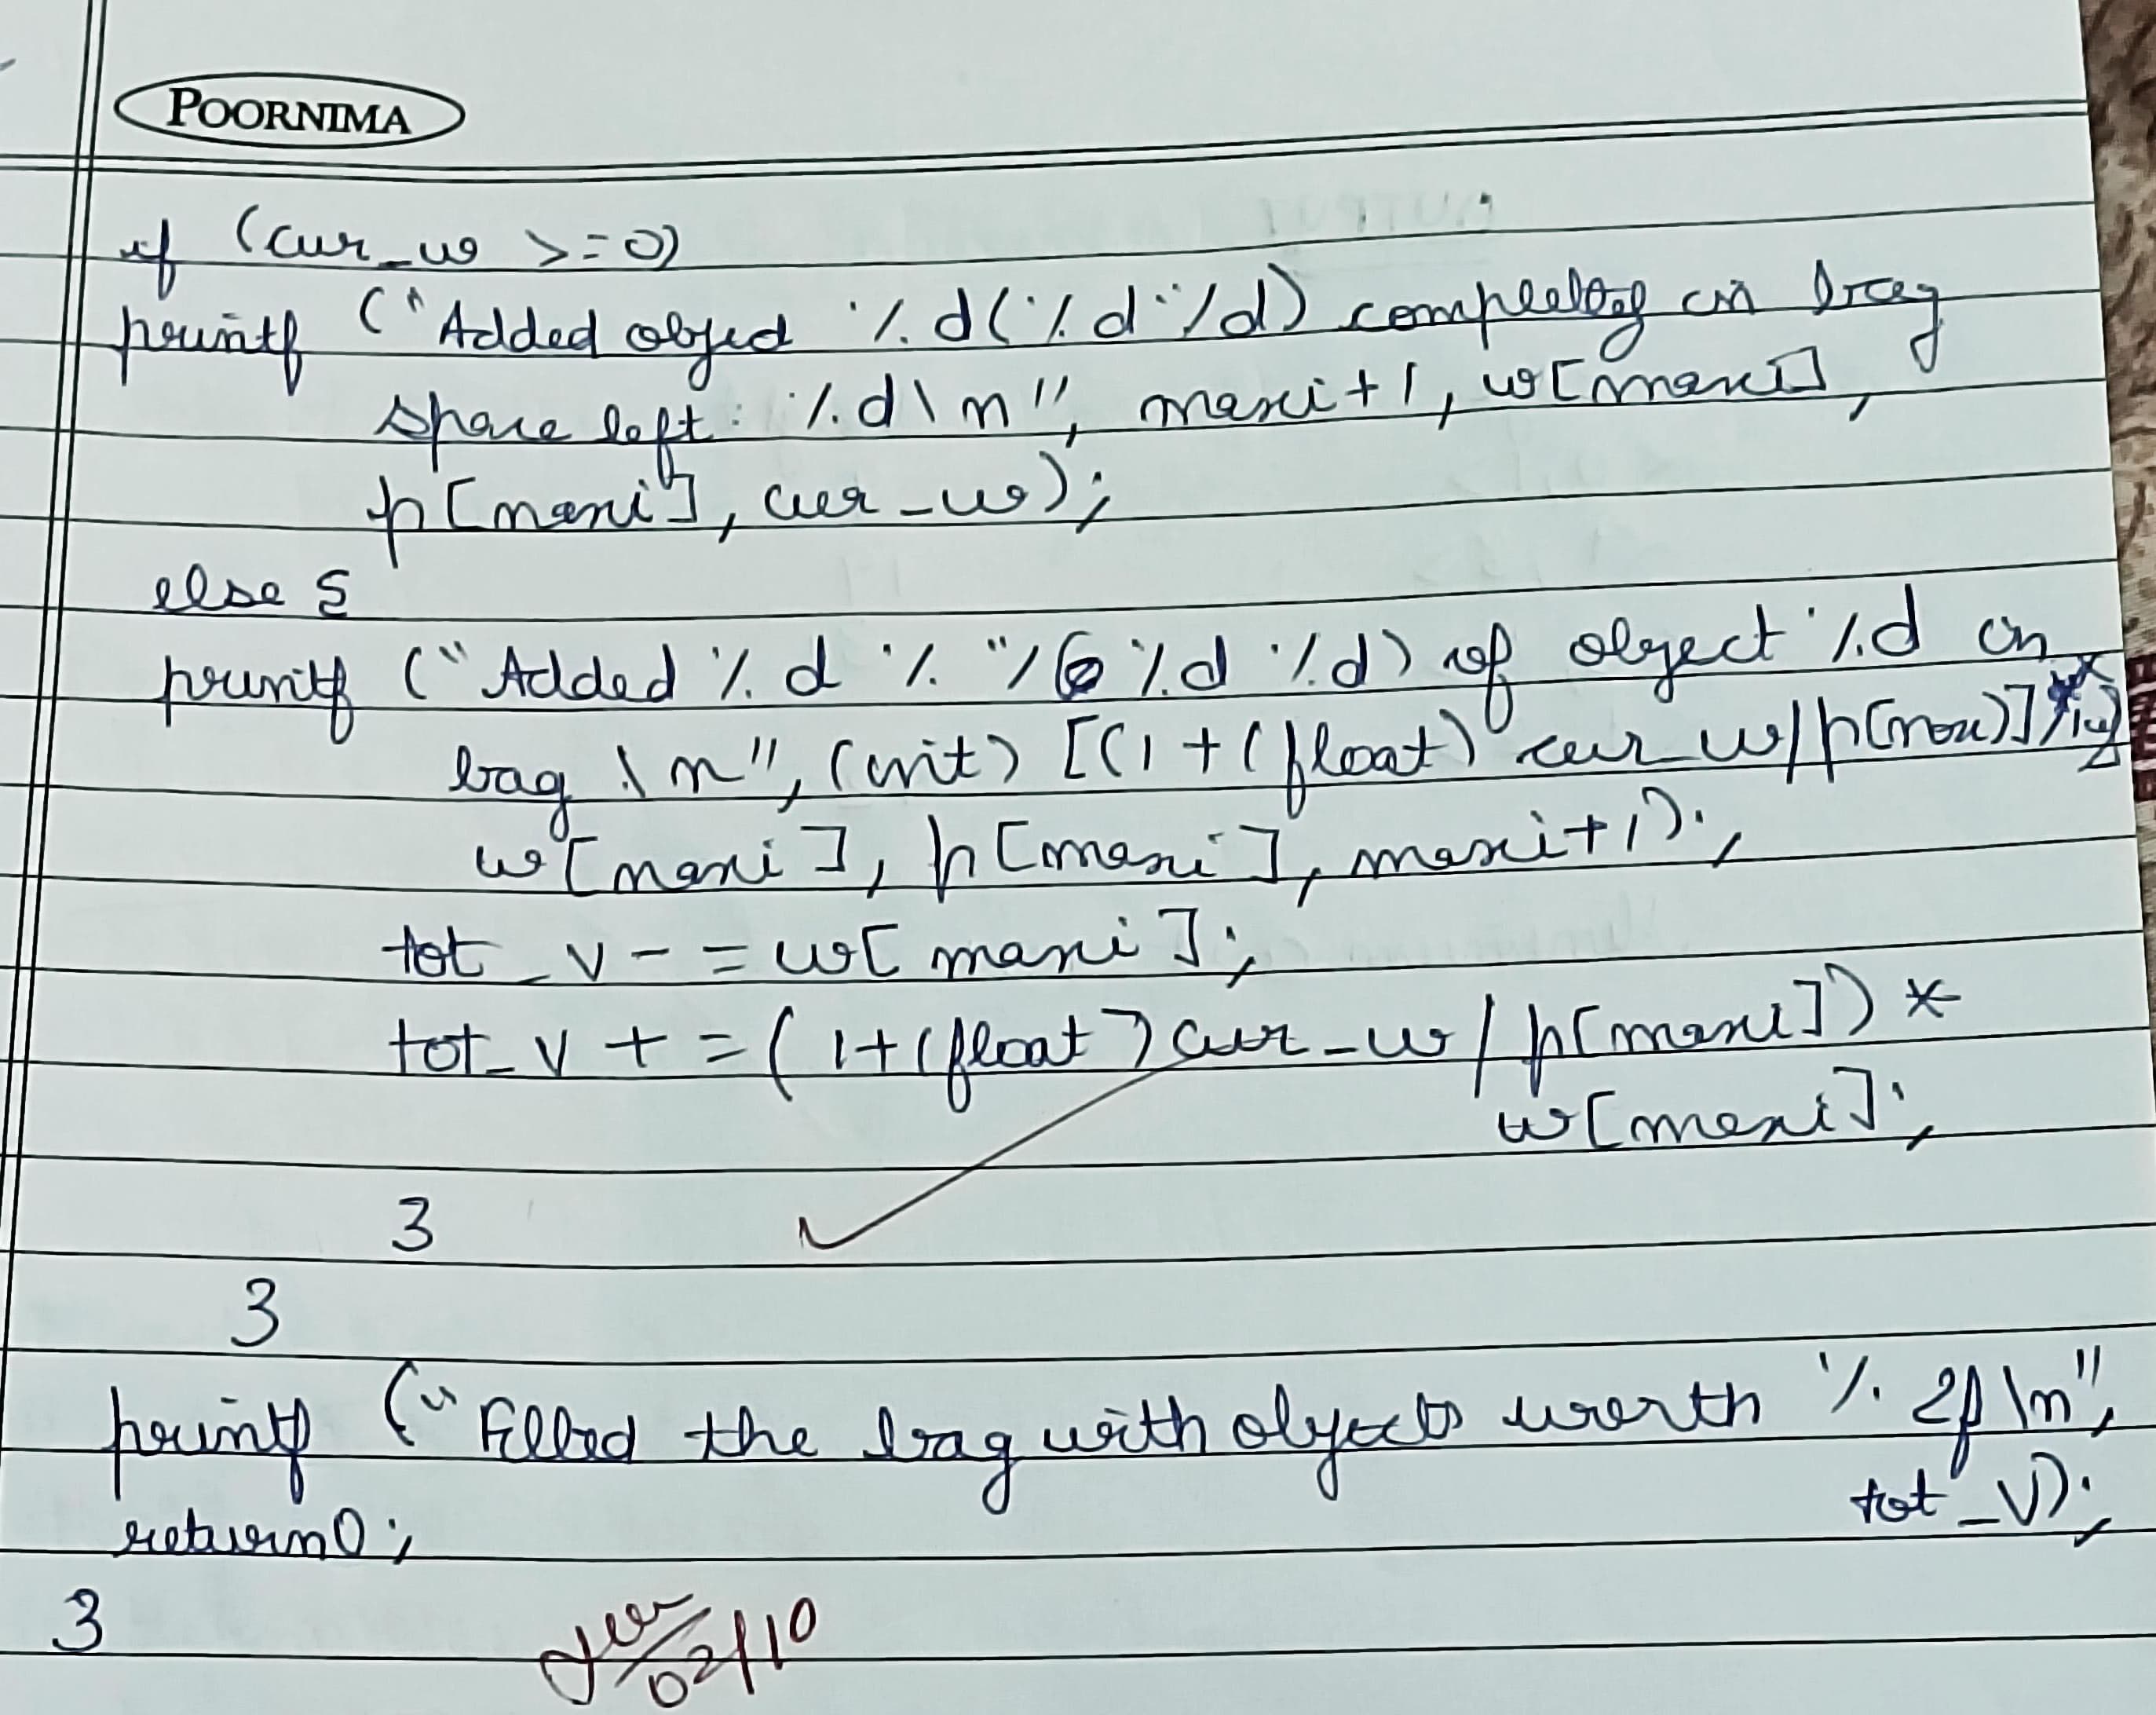 POORNIMA
if (cur_w >=0)
printf ("Added object %d(%d %d) completely in bag
space left: %d\n", maxi+1, w[maxi],
p[maxi], cur_w);
else {
printf ("Added %d % %( %d %d) of object %d in
bag \n", (int) [(1+(float) cur_w/p[max)]
w[maxi], p[maxi], maxi+1);
tot_v - = w[maxi];
tot_v + = (1+(float) cur_w/p[maxi]) *
w[maxi];
}
}
printf ("Filled the bag with objects worth %. 2f \n",
tot_v);
return0;
}
02/10